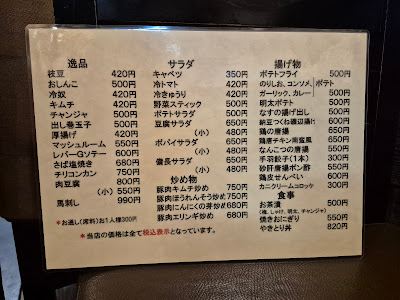 逸品
枝豆 420円
おしんこ 500円
冷奴 420円
キムチ 420円
チャンジャ 500円
出し巻玉子 500円
厚揚げ 420円
マッシュルーム 550円
レバーGソテー 600円
さば塩焼き 680円
チリコンカン 750円
肉豆腐 800円
(小) 550円
馬刺し 990円
*お通し(席料)お1人様300円
*当店の価格は全て税込表示となっています。
サラダ
キャベツ 350円
冷トマト 420円
冷きゅうり 420円
野菜スティック 500円
ポテトサラダ 500円
豆腐サラダ 650円
(小) 480円
ポパイサラダ 650円
(小) 480円
備長サラダ 650円
(小) 480円
炒め物
豚肉キムチ炒め 750円
豚肉ほうれんそう炒め 750円
豚肉にんにくの芽炒め 680円
豚肉エリンギ炒め 680円
揚げ物
ポテトフライ 500円
のりしお、コンソメ、ポテト
ガーリック、カレー 500円
明太ポテト 500円
なすの揚げ出し 500円
納豆つくね磯辺揚げ 600円
鶏の唐揚 650円
鶏唐チキン南蛮風 650円
なんこつの唐揚 500円
手羽餃子(1本) 300円
砂肝唐揚ポン酢 550円
鶏皮せんべい 600円
カニクリームコロッケ 300円
食事
お茶漬 500円
(梅、しゃけ、明太、チャンジャ)
焼きおにぎり 550円
やきとり丼 820円